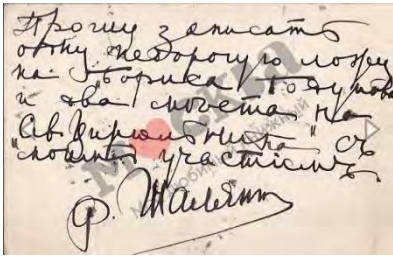 Прошу записать
одну недорогую ложу
на "Бориса Годунова"
и два места на
"Св. Цирюльника" съ
моимъ участіемъ
Ф. Шаляпин
МОСКВА